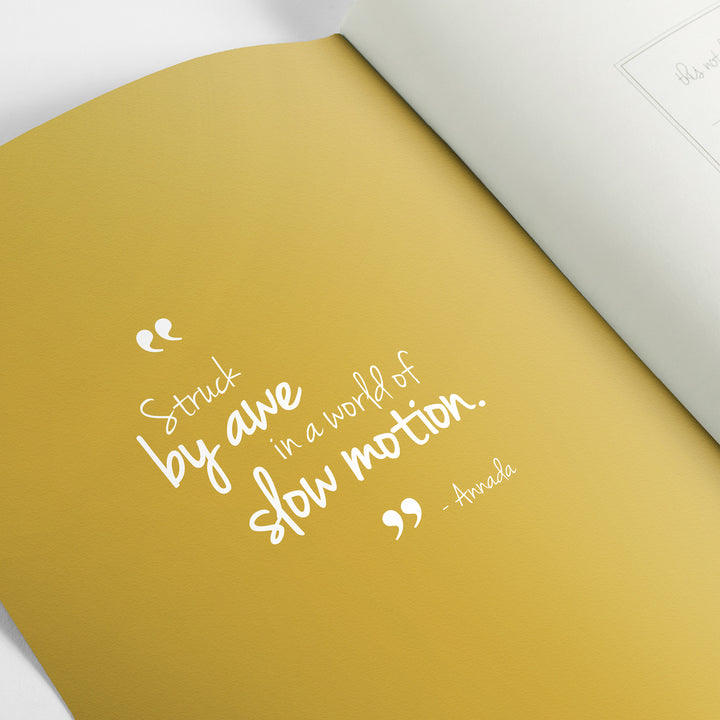 “
Struck
by awe
in a world of
slow motion.
”
- Annada
this not